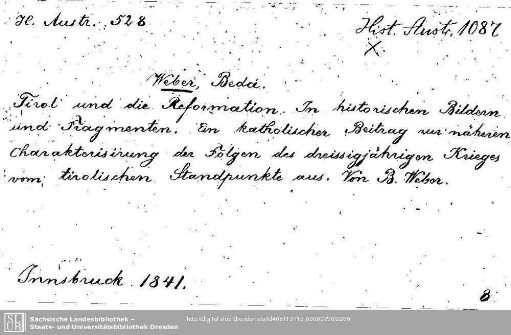 H. Austr. 528
Hist. Austr. 1087
x
Weber, Beda.
Tirol und die Reformation. In historischen Bildern
und Fragmenten. Ein katholischer Beitrag zur näheren
Charakterisirung der Folgen des dreissigjährigen Krieges
vom tirolischen Standpunkte aus. Von B. Weber.
Innsbruck 1841.
8
SLUB
Sächsische Landesbibliothek –
Staats- und Universitätsbibliothek Dresden